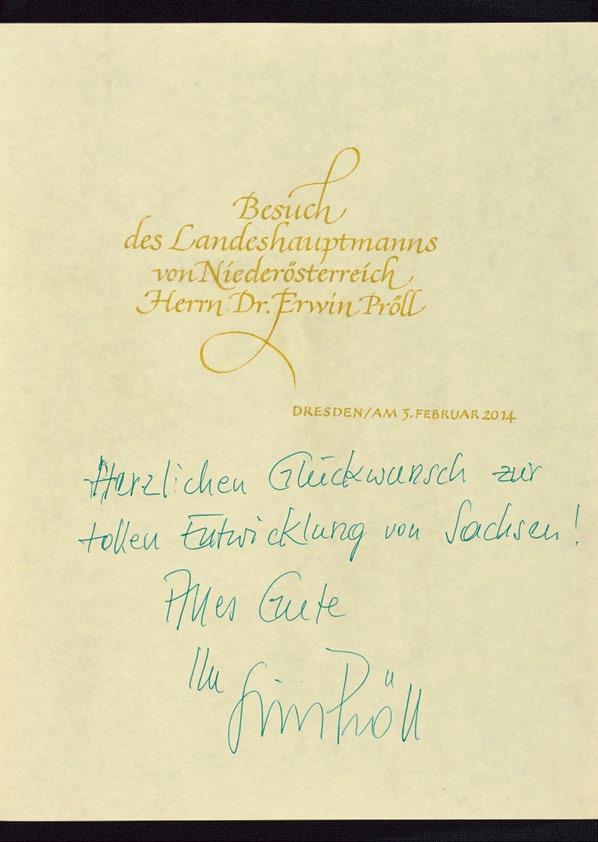 Besuch
des Landeshauptmanns
von Niederösterreich
Herrn Dr. Erwin Pröll
DRESDEN/AM 3. FEBRUAR 2014
Herzlichen Glückwunsch zur
tollen Entwicklung von Sachsen!
Alles Gute
Ihr
Erwin Pröll